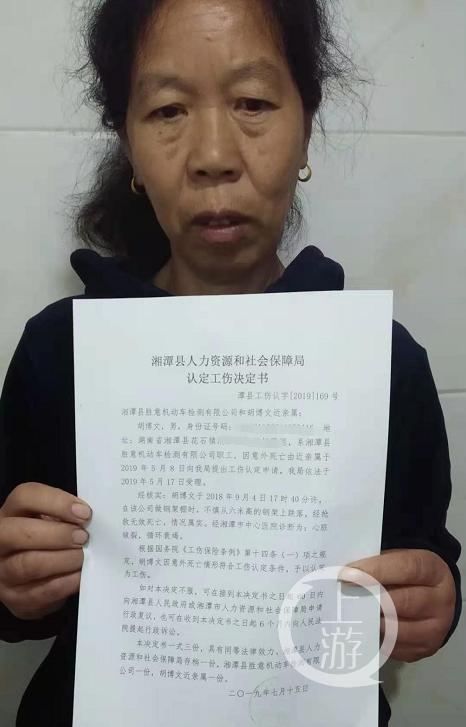 湘潭县人力资源和社会保障局
认定工伤决定书
潭县工伤认字[2019]169 号
湘潭县胜意机动车检测有限公司和胡博文近亲属：
胡博文，男，身份证号码： 地
址：湖南省湘潭县花石镇 ，系湘潭县
胜意机动车检测有限公司职工，因意外死亡由近亲属于
2019 年 5 月 8 日向我局提出工伤认定申请，我局依法于
2019 年 5 月 17 日受理。
经核实：胡博文于 2018 年 9 月 4 日 17 时 40 分许，
在该公司做钢架棚时，不慎从六米高的钢架上跌落，经抢
救无效死亡，情况属实。经湘潭市中心医院诊断为：心脏
破裂，循环衰竭。
根据国务院《工伤保险条例》第十四条（一）项之规
定，胡博文因意外死亡情形符合工伤认定条件，予以认定
为工伤。
如对本决定不服，可在接到本决定书之日起 60 日内
向湘潭县人民政府或湘潭市人力资源和社会保障局申请
行政复议，也可在收到本决定书之日起 6 个月内向人民法
院提起行政诉讼。
本决定书一式三份，具有同等法律效力，湘潭县人力
资源和社会保障局存档一份，湘潭县胜意机动车检测有限
公司一份，胡博文近亲属一份。
二〇一九年七月十五日
上游